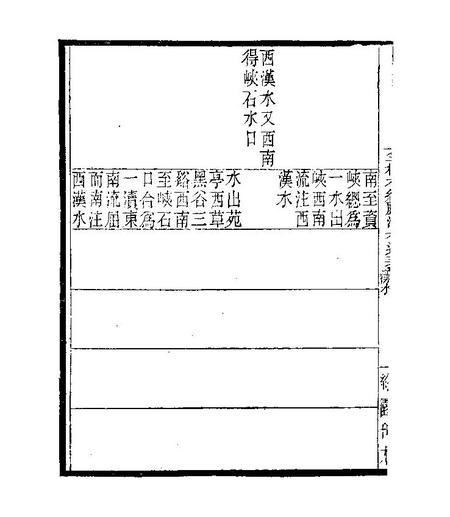 南至資
峽總為
一水出
峽西南
流注西
漢水
西漢水又西南
得峽石水口
水出苑
亭西草
黑谷三
谿西南
至峽石
口合為
一瀆東
南流屈
而南注
西漢水